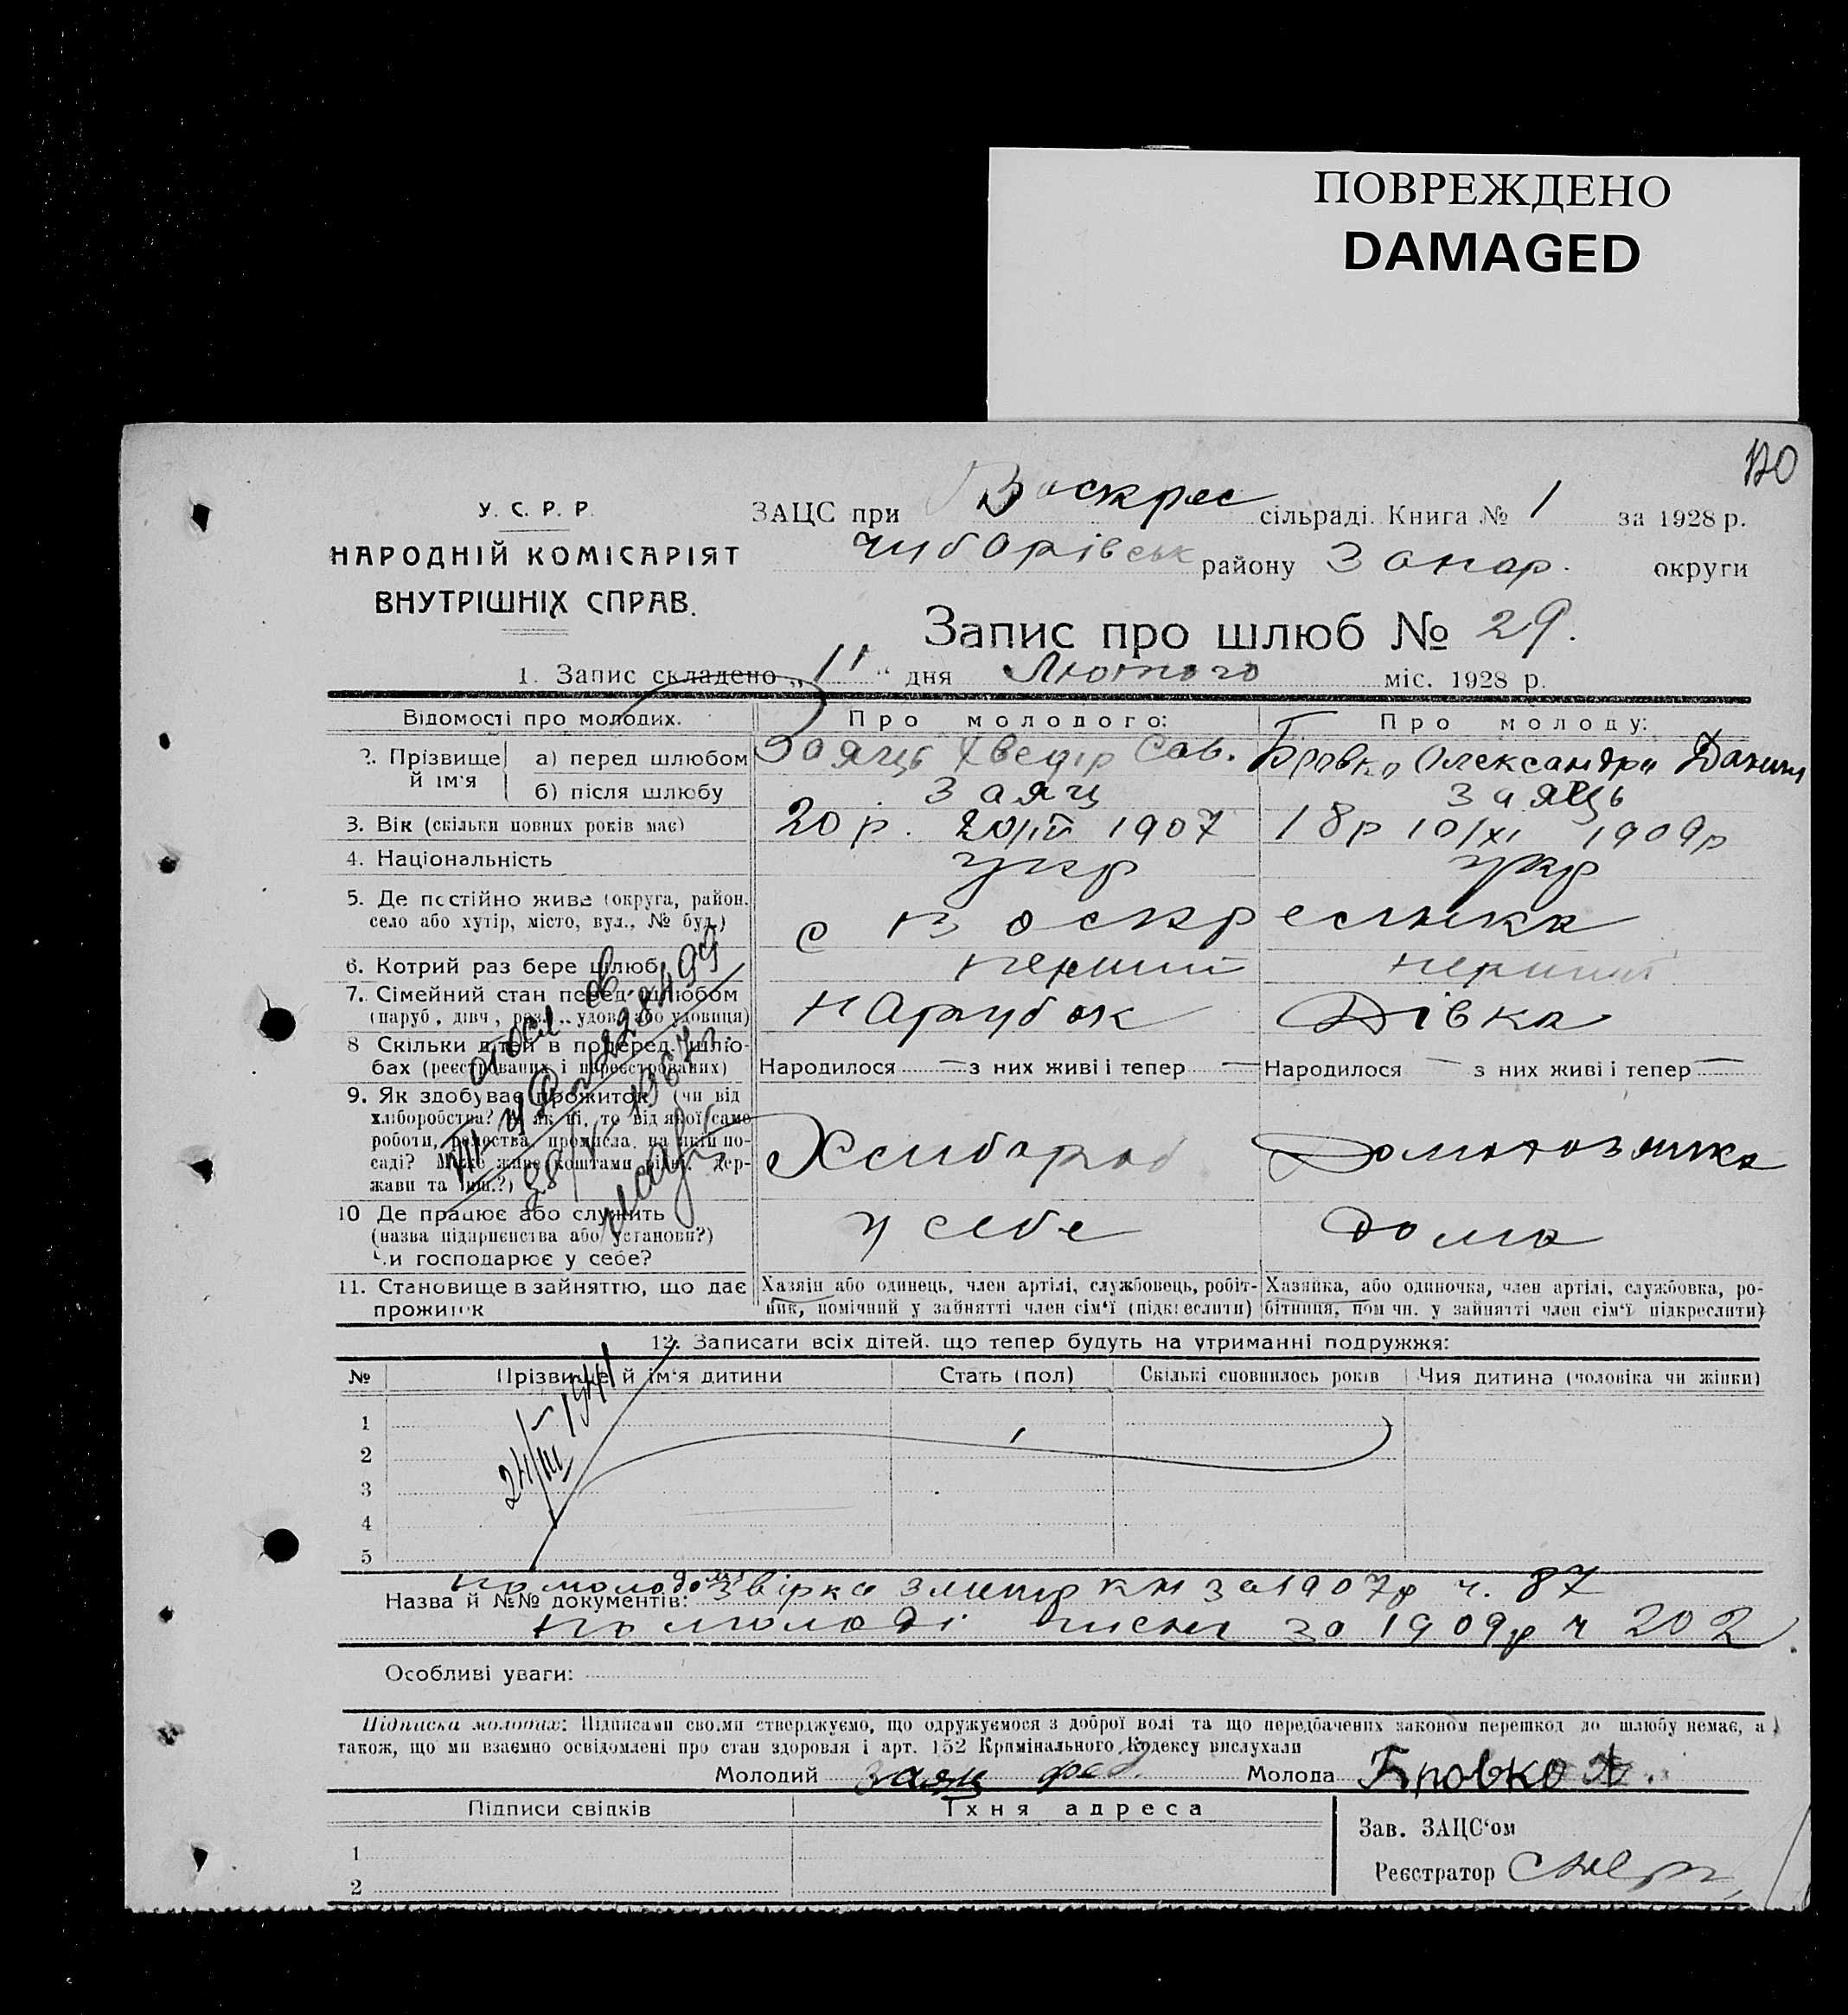 ПОВРЕЖДЕНО
DAMAGED
120
У. С. Р. Р.
НАРОДНІЙ КОМІСАРІЯТ
ВНУТРІШНІХ СПРАВ.
ЗАЦС при Воскрес сільраді. Книга № 1 за 1928 р.
Чубарівськ району Запор. округи
Запис про шлюб № 29.
1. Запис складено „11“ дня Лютого міс. 1928 р.
Відомості про молодих. Про молодого: Про молоду:
2. Прізвище й ім'я
а) перед шлюбом Заяць Хведір Сав. Бровко Олександра Данил
б) після шлюбу Заяц Заяць
3. Вік (скільки повних років має) 20 р. 20/IV 1907 18 р 10/XI 1909 р
4. Національність укр укр
5. Де постійно живе (округа, район,
село або хутір, місто, вул., № буд.) с Воскресенка
6. Котрий раз бере шлюб перший перший
7. Сімейний стан перед шлюбом
(паруб., дівч., розл., удова або удовиця) Парубок Дівка
8 Скільки дітей в поперед. шлю-
бах (реєстрованих і нереєстрованих) Народилося — з них живі і тепер — Народилося — з них живі і тепер —
9. Як здобуває прожиток (чи від
хліборобства? А як ні, то від якої саме
роботи, ремества, промисла, на якій по-
саді? Може живе коштами рідні, дер-
жави та инш.?) Хлибороб Домохозяика
10 Де працює або служить
(назва підприємства або установи?)
Чи господарює у себе? у себе дома
11. Становище в зайняттю, що дає
прожиток
Хазяїн або одинець, член артілі, службовець, робіт-
ник, помічний у зайнятті член сім‘ї (підкреслити)
Хазяйка, або одиночка, член артілі, службовка, ро-
бітниця, пом чн. у зайнятті член сім‘ї підкреслити)
28/V 1967 г.
12. Записати всіх дітей. що тепер будуть на утриманні подружжя:
№ Прізвище й ім‘я дитини Стать (пол) Скількі сповнилось років Чия дитина (чоловіка чи жінки)
1
2
3
4
5
24/III–1941
Назва й №№ документів: По молодому звірка з метр кн за 1907 р ч. 87
По молоді за 1909 р ч 202
Особливі уваги:
Підписка молодих: Підписами своїми стверджуємо, що одружуємося з доброї волі та що передбачених законом перешкод до шлюбу немає, а
також, що ми взаємно освідомлені про стан здоровля і арт. 152 Кримінального Кодексу вислухали
Молодий Заяц Фед. Молода Бровко А.
Підписи свідків Їхня адреса
1
2
Зав. ЗАЦС‘ом
Реєстратор